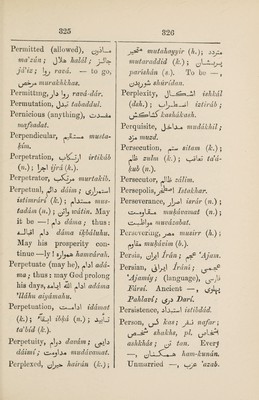 325
Permitted (allowed), مأذون
ma'zūn ; حلال halāl ; جائز
jā'iz ; روا ravā. — to go,
مرخص murakhkhas.
Permitting, روادار ravā-dār.
Permutation, تبدل tabaddul.
Pernicious (anything), مفسدت
mafsadat.
Perpendicular, مستقيم musta-
ḳīm.
Perpetration, ارتكاب irtikāb
(n.) ; اجرا ijrā (k.).
Perpetrator, مرتكب murtakib.
Perpetual, دائم dāim ; استمراري
istimrārī (k.) ; مستدام mus-
tadām (n.) ; واتن vātin. May
it be — ! دام dāma ; thus :
دام اقباله dāma iḳbāluhu.
May his prosperity con-
tinue —ly ! همواره hamvārah.
Perpetuate (may he), ادام adā-
ma ; thus : may God prolong
his days, ادام الله ايامه adāma
'llāhu aiyāmahu.
Perpetuation, ادامت idāmat
(k.) ; ابقاء ibḳā (n.) ; تأبيد
ta'bīd (k.).
Perpetuity, دوام davām ; دائمي
dāimī ; مداومت mudāvamat.
Perplexed, حيران hairān (k.) ;
326
متحير mutahayyir (h.) ; متردد
mutaraddid (k.) ; پريشان
parishān (s.). To be —,
شوريدن shūrīdan.
Perplexity, اشكال ishkāl
(dsh.) ; اضطراب istirāb ;
كشاكش kashākash.
Perquisite, مداخل mudākhil ;
مزد muzd.
Persecution, ستم sitam (k.) ;
ظلم zulm (k.) ; تعاقب ta'ā-
ḳub (n.).
Persecutor, ظالم zālim.
Persepolis, اصطخر Istakhar.
Perseverance, اصرار isrār (n.) ;
مداومت muḥāvamat (n.) ;
مواظبت muvāzobat.
Persevering, مصر musirr (h.) ;
مقاوم muḥāvim (b.).
Persia, ايران Īrān ; عجم 'Ajam.
Persian, ايراني Īrānī ; عجمي
'Ajamīy ; (language), فارسي
Fārsī. Ancient —, پهلوي
Pahlavī ; دري Darī.
Persistence, استبداد istibdād.
Person, كس kas ; نفر nafar ;
شخص shakhs, pl. اشخاص
ashkhās ; تن tan. Every
—, همكنان ham-kunān.
Unmarried —, عزب 'azab.